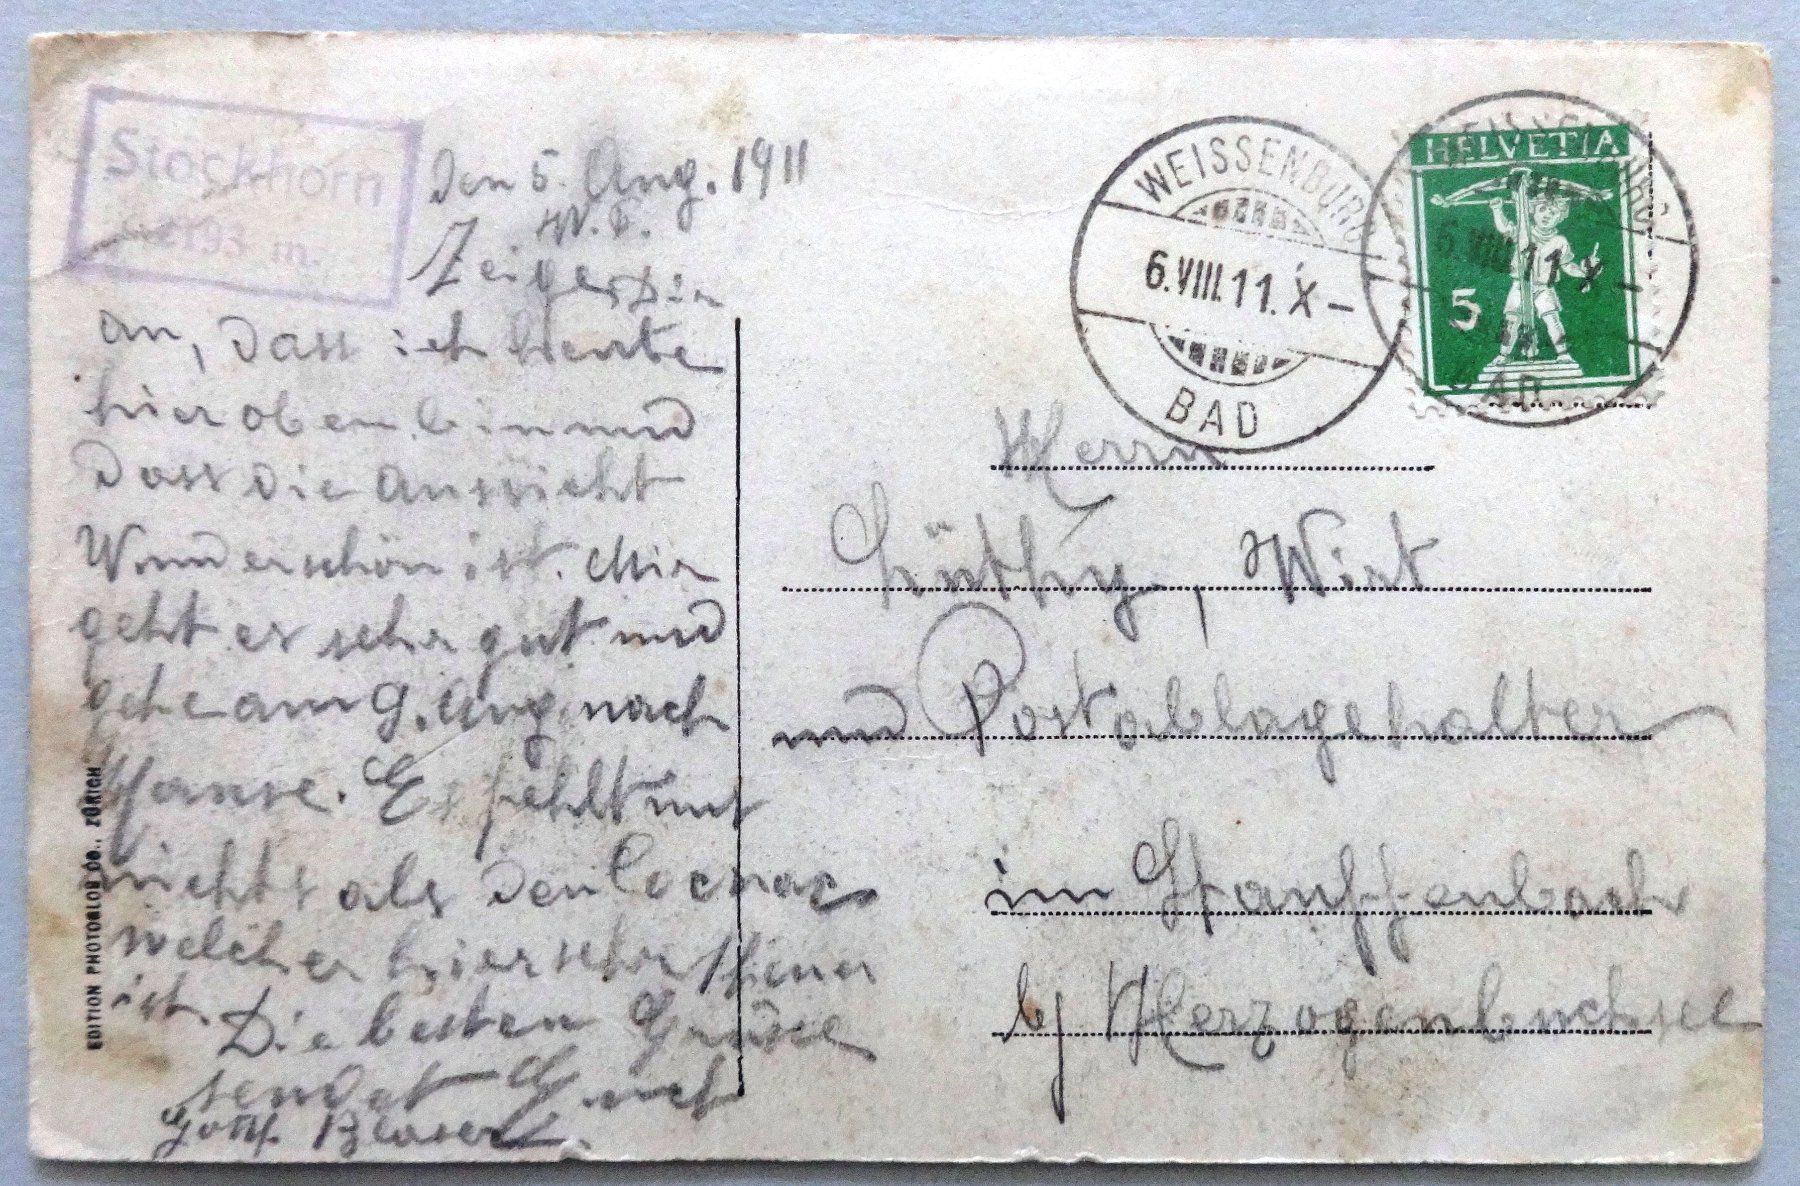 Stockhorn
2193 m.
Den 5. Aug. 1911
W. L.
Zeige Dir
an, dass ich heute
hier oben bin und
dass die Aussicht
Wunderschön ist. Mir
geht es sehr gut und
gehe am 9. Aug. nach
Hause. Es fehlt mir
nichts als den Cocnac
welcher hier sehr theuer
ist. Die besten Grüsse
sendet Euch
Gottf. Blaser
EDITION PHOTOGLOB CO., ZÜRICH
WEISSENBURG
6.VIII.11.X-
BAD
WEISSENBURG
6.VIII.11.X-
BAD
HELVETIA
5
Herrn
Lüthy, Wirt
und Postablagehalter
im Stauffenbach
bj Herzogenbuchsee